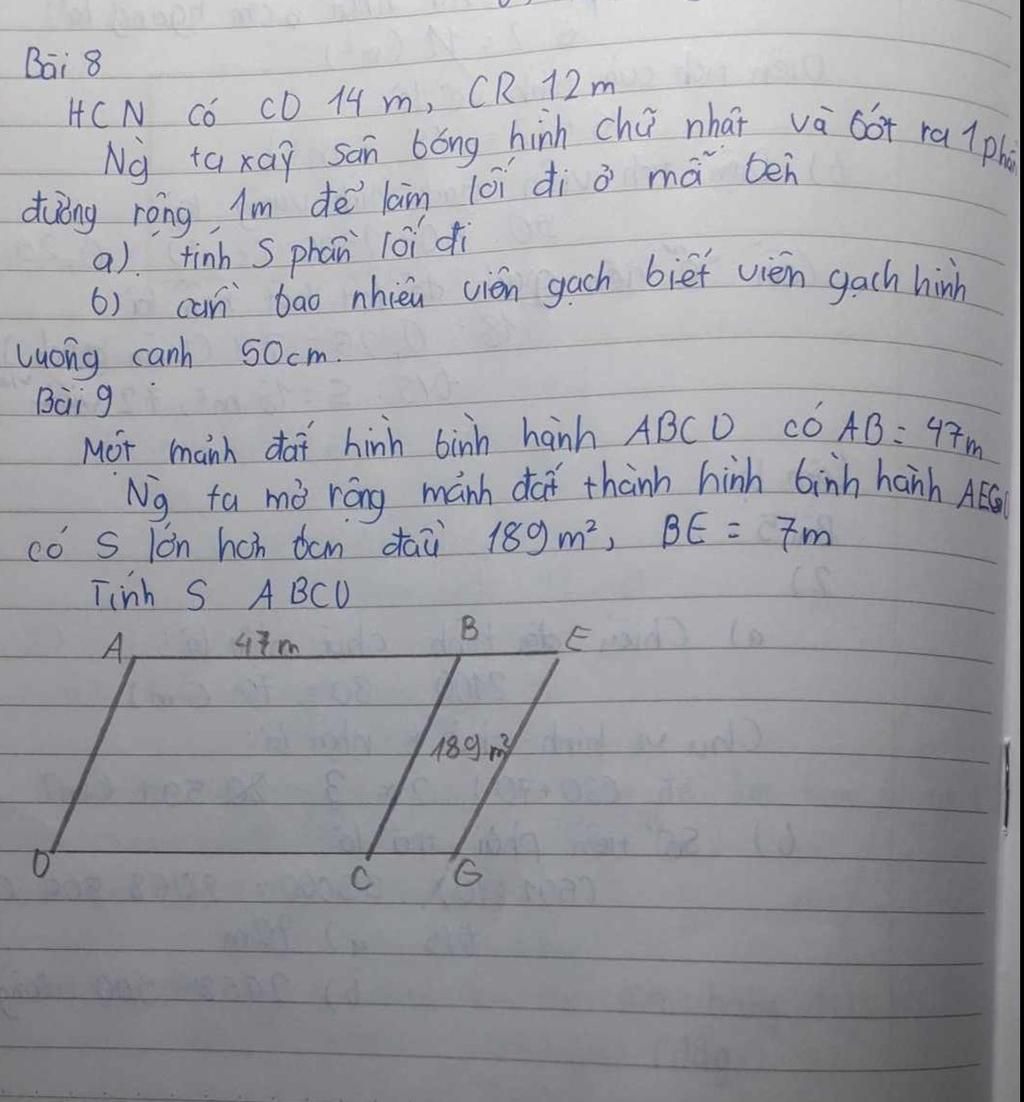 Bài 8
HCN có CD 14m, CR 12m
Ng ta xây sân bóng hình chữ nhật và bớt ra 1 phần
đường rộng 1m để làm lối đi ở mỗ bên
a). tính S phần lối đi
b) cần bao nhiêu viên gạch biết viên gạch hình
vuông cạnh 50cm.
Bài 9
Một mảnh đất hình bình hành ABCD có AB = 47m
Ng ta mở rộng mảnh đất thành hình bình hành AEG
có S lớn hơn ban đầu 189m², BE = 7m
Tính S ABCD
A 47m B E
189m²
D C G